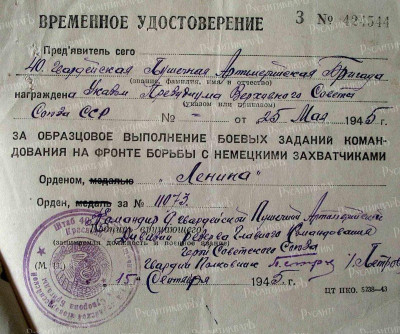 ВРЕМЕННОЕ УДОСТОВЕРЕНИЕ З № 424544
Пред'явитель сего
40. Гвардейская Пушечная Артиллерийская Бригада
(звание, фамилия, имя и отчество)
награждена Указом Президиума Верховного Совета
(указом или приказом)
Союза ССР № - от 25 Мая 1945 г.
ЗА ОБРАЗЦОВОЕ ВЫПОЛНЕНИЕ БОЕВЫХ ЗАДАНИЙ КОМАН-
ДОВАНИЯ НА ФРОНТЕ БОРЬБЫ С НЕМЕЦКИМИ ЗАХВАТЧИКАМИ
Орденом, медалью "Ленина"
Орден, медаль за № 11073.
Командир Гвардейской Пушечной Артиллерийской
Дивизии Резерва Главного Командования
(занимаемая должность и военное звание)
Герой Советского Союза
Гвардии Полковник /Петров
(М. П.)
"15" Сентября 1945 г.
ЦТ НКО. 5238—43